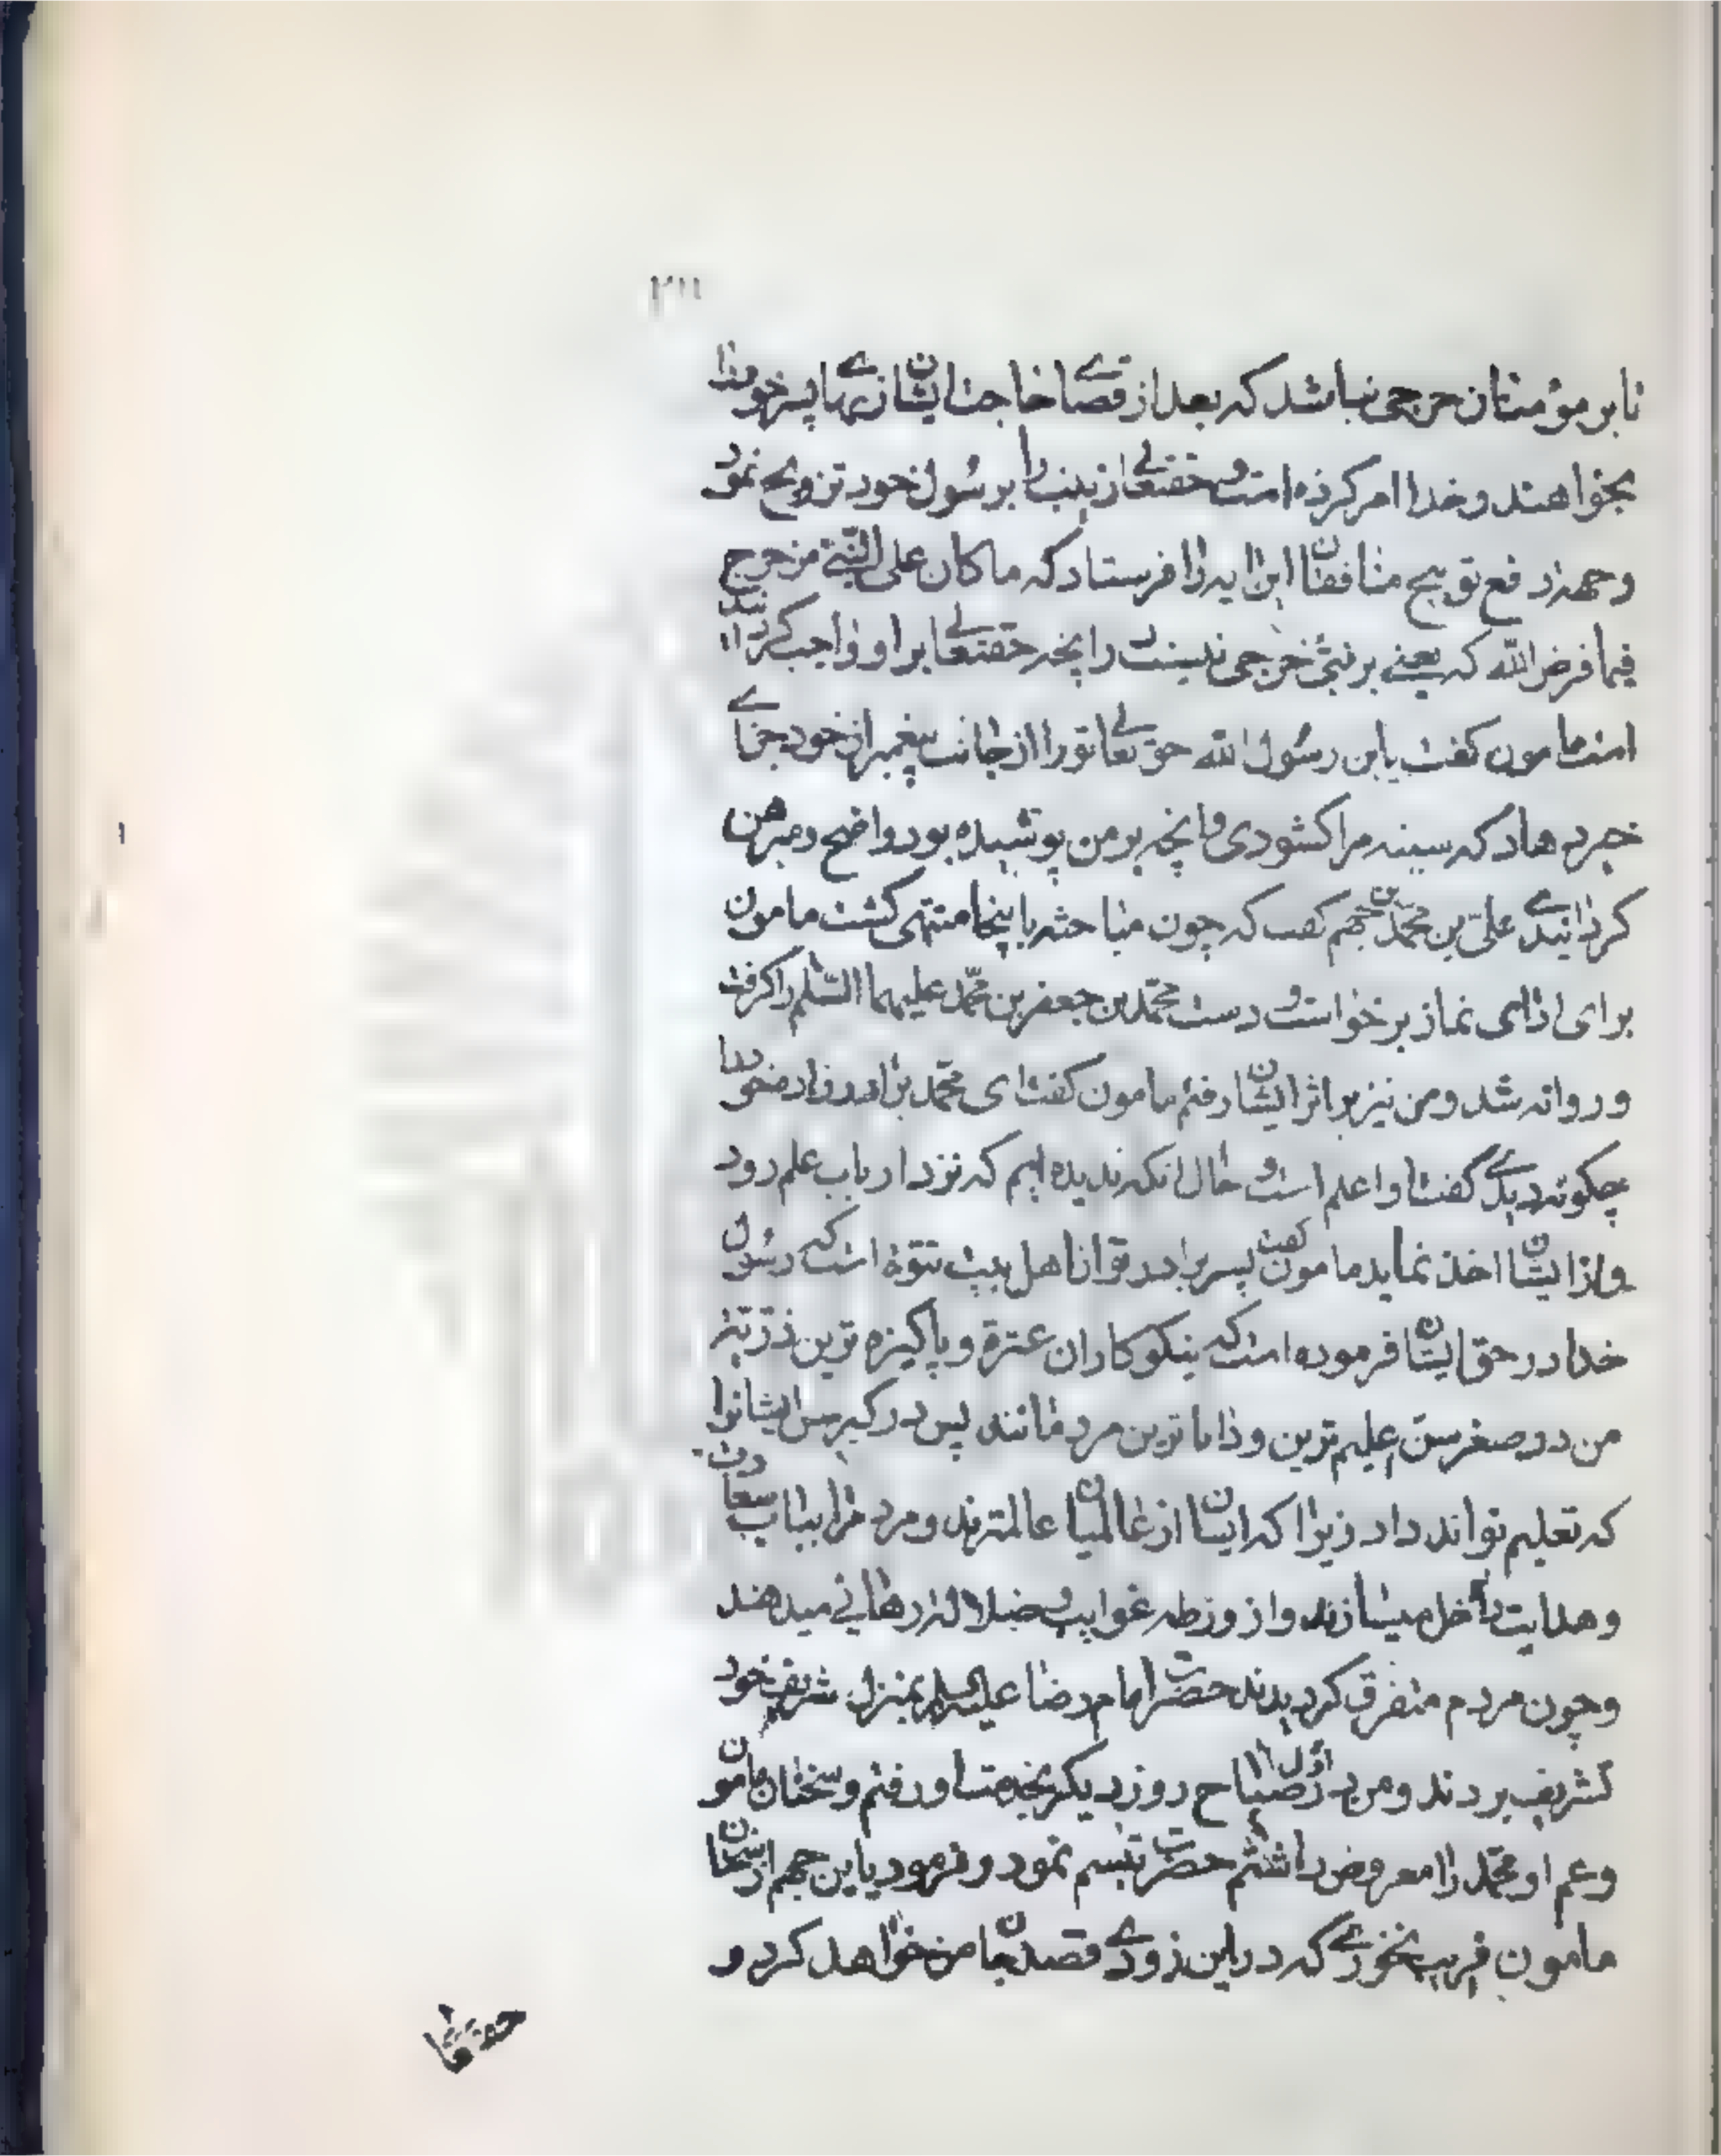 تا بر مؤمنان حرجی نباشد که بعد از قضای حاجت ایشان زنهای پسرخوندا
بخواهند و خدا امر کرده است و حقتعالی زینب را بر رسول خود تزویج نمود
و جهة دفع توبیخ منافقان این آیه را فرستاد که ما کان علی النبی من حرج
فیما فرض الله که یعنی بر نبی حرجی نیست در آنچه حقتعالی بر او واجب گردانیده
است مامون گفت یابن رسول الله حق تعالی تو را از جانب پیغمبران خود جزای
خیر دهاد که سینه مرا گشودی و آنچه بر من پوشیده بود واضح و مبرهن
گردانیدی علی بن محمد بن جهم گفت که چون مباحثه باینجا منتهی گشت مامون
برای ادای نماز برخواست و دست محمد بن جعفر بن محمد علیهما السلم را گرفت
و روانه شد و من نیز بر اثر ایشان رفتم مامون گفت ای محمد برادرزاده خود را
چگونه دیدی گفت او اعلم است و حال آنکه ندیده ایم که نزد ارباب علم رود
و از ایشان اخذ نماید مامون گفت پسر برادر تو از اهل بیت نبوة است که رسول
خدا در حق ایشان فرموده است که نیکوکاران عترة و پاکیزه ترین ذریة
من در صغر سن علیم ترین و دانا ترین مردمانند پس در کبر سن ایشانرا
که تعلیم تواند داد زیرا که ایشان از عالمیان عالمترند و مردم را بباب سعادت
و هدایت داخل میسازند و از ورطه غوایب و ضلالة رهائی میدهند
و چون مردم متفرق گردیدند حضرت امام رضا علیه السلم بمنزل شریف خود
تشریف بردند و من در اول صباح روز دیگر بخدمت او رفتم و سخنان مامون
و عم او محمد را معروض داشتم حضرت تبسم نمود و فرمود یابن جهم از سخنان
مامون فریب نخوری که در این زودی قصد جان من خواهد کرد و